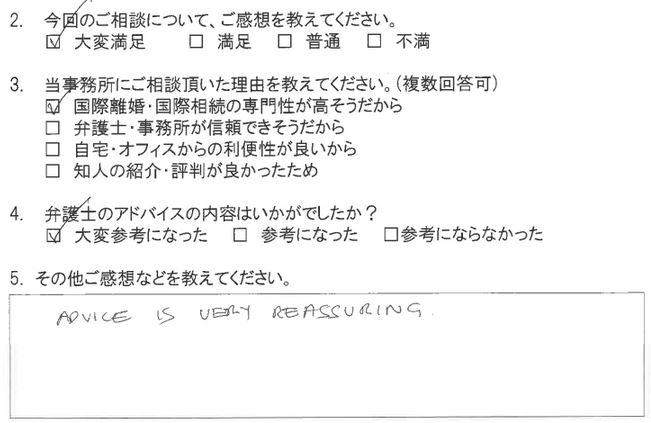 2. 今回のご相談について、ご感想を教えてください。
☑ 大変満足 □ 満足 □ 普通 □ 不満
3. 当事務所にご相談頂いた理由を教えてください。(複数回答可)
☑ 国際離婚・国際相続の専門性が高そうだから
□ 弁護士・事務所が信頼できそうだから
□ 自宅・オフィスからの利便性が良いから
□ 知人の紹介・評判が良かったため
4. 弁護士のアドバイスの内容はいかがでしたか?
☑ 大変参考になった □ 参考になった □参考にならなかった
5. その他ご感想などを教えてください。
ADVICE IS VERY REASSURING.